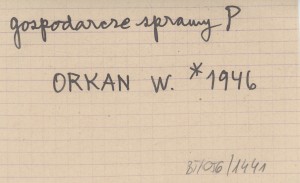 gospodarcze sprawy P
ORKAN W. *1946
BJ/056/1441